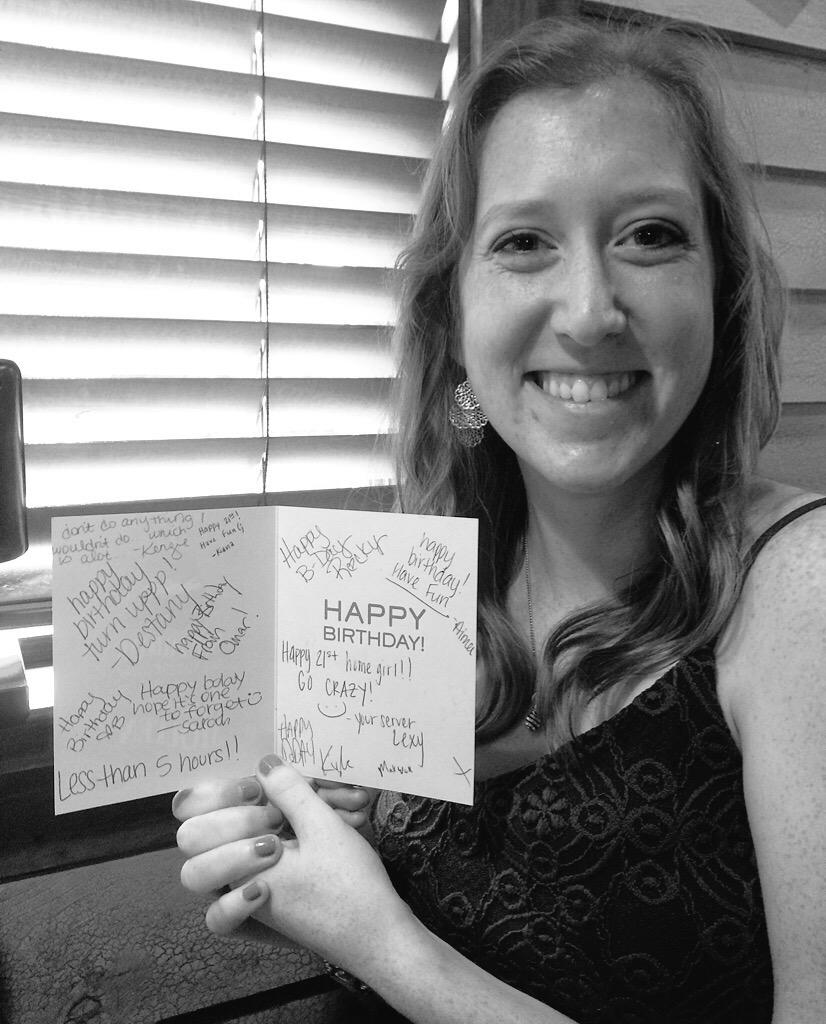 don't do anything I
wouldn't do which
is alot -Kenzie
Happy 21st!
Have Fun
happy
birthday
turn uppp!
-Destany
happy Birthday
From
Omar!
Happy
Birthday
Happy bday
hope it's one
to forget
-Sarah
Less than 5 hours!!
Happy
B-Day
happy
birthday!
Have Fun
-Aimee
HAPPY
BIRTHDAY!
Happy 21st home girl!!
GO CRAZY!
-your server
Lexy
HAPPY
BDAY
Kyle